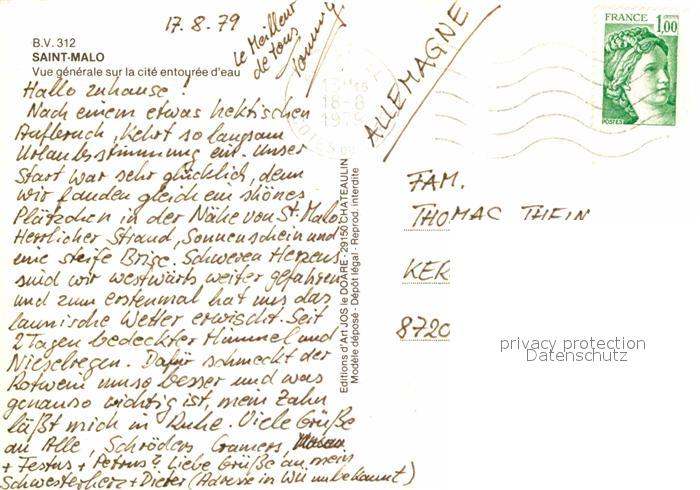 17.8.79
le Meilleur
de tous
ALLEMAGNE
FRANCE
1,00
POSTES
B.V. 312
SAINT-MALO
Vue générale sur la cité entourée d'eau
18-8
1979
Hallo zuhause!
Nach einem etwas hektischen
Aufbruch, kehrt so langsam
Urlaubsstimmung ein. Unser
Start war sehr glücklich, denn
wir fanden gleich ein schönes
Plätzchen in der Nähe von St. Malo.
Herrlicher Strand, Sonnenschein und
eine steife Brise. Schweren Herzens
sind wir westwärts weiter gefahren
und zum erstenmal hat uns das
launische Wetter erwischt. Seit
2 Tagen bedeckter Himmel und
Nieselregen. Dafür schmeckt der
Rotwein umso besser und was
genauso wichtig ist, mein Zahn
läßt mich in Ruhe. Viele Grüße
an Alle, Schröders, Cramers,
+ Festus + Petrus? Liebe Grüße an mein
Schwesterherz + Dieter (Adresse in WÜ unbekannt)
Editions d'Art JOS le DOARE - 29150 CHATEAULIN
Modèle déposé - Dépôt légal - Reprod. interdite
FAM.
THOMAS THEIN
KER
8720
privacy protection
Datenschutz